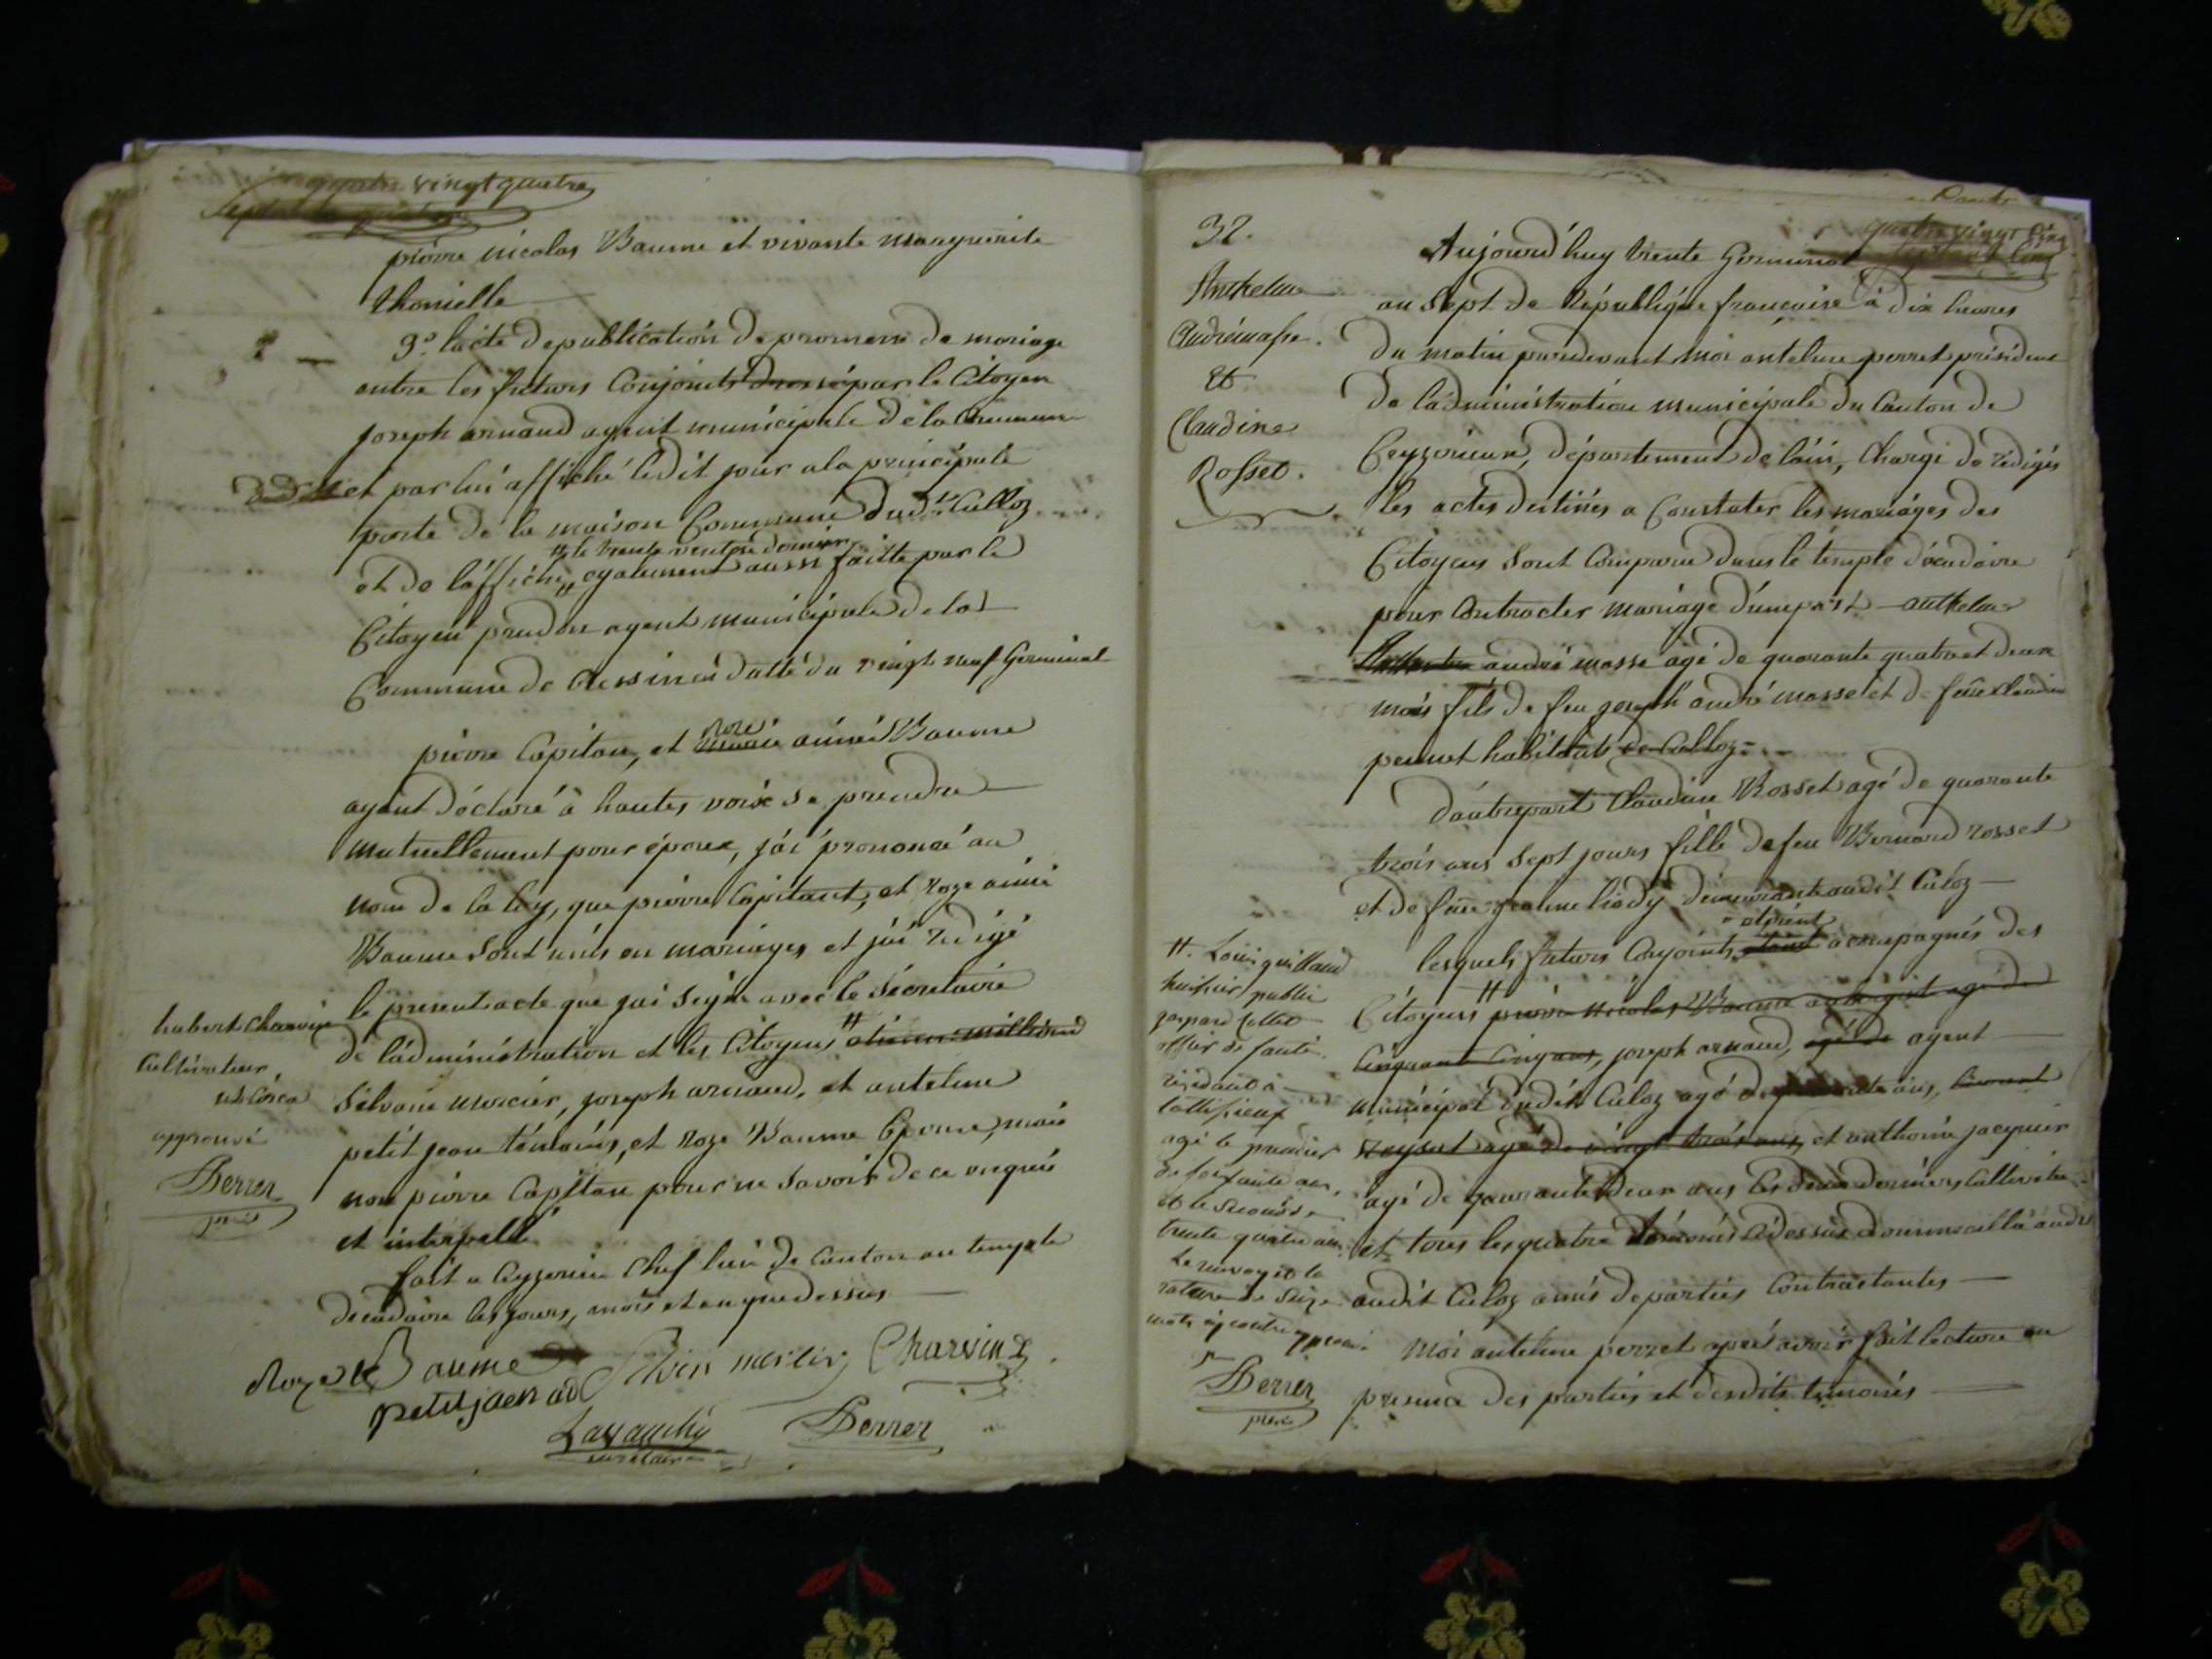 quatre vingt quatre
pierre nicolas Baume et vivante marguerite
thonielle
3º. lacte de publication de promesse de mariage
entre les futurs Conjoints dressé par le Citoyen
joseph arnaud agent municipale de la Commune
et par lui affiché ledit jour a la principale
porte de la maison Commune dudt Culloz
# le trente ventose dernier
et de l'affiche # egalement aussi faitte par le
Citoyen prudon agent municipale de la
Commune de datté du vingt neuf Germinal
roze
pierre Capitan, et marie aimée Baume
ayant déclaré à hautes voix se prendre
mutuellement pour époux, j'ai prononcé au
nom de la loy, que pierre Capitant, et roze aimé
Baume sont unis en mariages et j'ai redigé
le present acte que j'ai signé avec le sécretaire
de l'administration et les Citoyens #
Silvain mercier, joseph arnaud, et antelme
petit jean témoins, et roze Baume Epouse, mais
non pierre Capitan pour ne savoir de ce enquis
et interpellé
fait a Ceyzerieu Chef lieu de Canton au temple
decadaire les jours, mois et an que dessus
hubert Charvin
Cultivateur,
approuvé
Perret
Roze Baume Silvin mercier Charvin
petitjaen
secretaire Perret
quatre vingt cinq
septante cinq
32.
Anthelme
Andrémasse.
et
Claudine
Rosset.
Aujourd'huy trente Germinal
an sept de République francaise à dix heures
du matin pardevant moi antelme perret président
de l'administration municipale du Canton de
Ceyzerieux, département de l'ain, Chargé de rédiger
les actes destinés a Constater les mariages des
Citoyens sont Comparu dans le temple décadaire
pour Contracter mariage d'unepart anthelme
andré masse agé de quarante quatre et deux
mois fils de feu joseph andré masse et de feue claudine
pernet habitant de Culloz
d'autrepart Claudine Rosset agé de quarante
trois ans sept jours fille de feu Bernard rosset
et de feue jeanne demeurante audit Culoz
etoient
lesquels futurs Conjoints acompagnés des
Citoyens # pierre Nicolas Baume aubergiste agé de
Cinquante Cinq ans, joseph arnaud, agé de agent
municipal dudit Culoz agé de ans,
agé de vingt trois ans, et anthoine jacquier
agé de quarante deux ans les deux derniers Cultivateurs
et tous les quatre témoins
audit Culoz amis de parties Contractantes
moi antelme perret aprés avoir fait lecture en
presence des parties et desdits temoins
#. Louis guillaud
huissier public
gaspard
officier de santé
résidant à
agé le premier
de soixante ans,
et le second de
trente quatre ans.
Le renvoy et la
rature de seize
mots cy contre approuvé
Perret